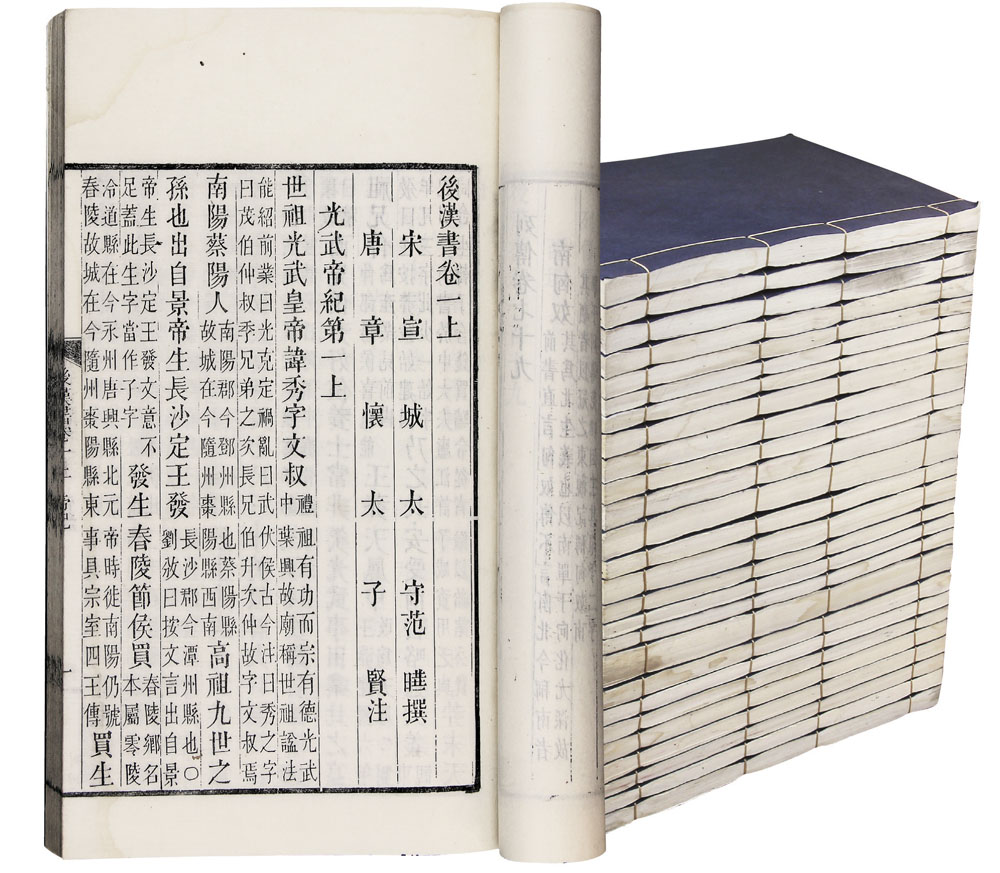 後漢書卷一上
宋宣城太守范曄撰
唐章懷太子賢注
光武帝紀第一上
世祖光武皇帝諱秀字文叔禮祖有功而宗有德光武中葉興故廟稱世祖謚法
能紹前業曰光克定禍亂曰武伏侯古今注曰秀之字曰茂伯仲叔季兄弟之次長兄伯升次仲故字文叔焉
南陽蔡陽人南陽郡今鄧州縣也蔡陽縣故城在今隨州棗陽縣西南高祖九世之
孫也出自景帝生長沙定王發長沙郡今潭州縣也○劉攽曰按文言出自景
帝生長沙定王發文意不足蓋此生字當作子字發生春陵節侯買春陵鄉名本屬零陵
泠道縣在今永州唐興縣北元帝時徙南陽仍號春陵故城在今隨州棗陽縣東事具宗室四王傳買生